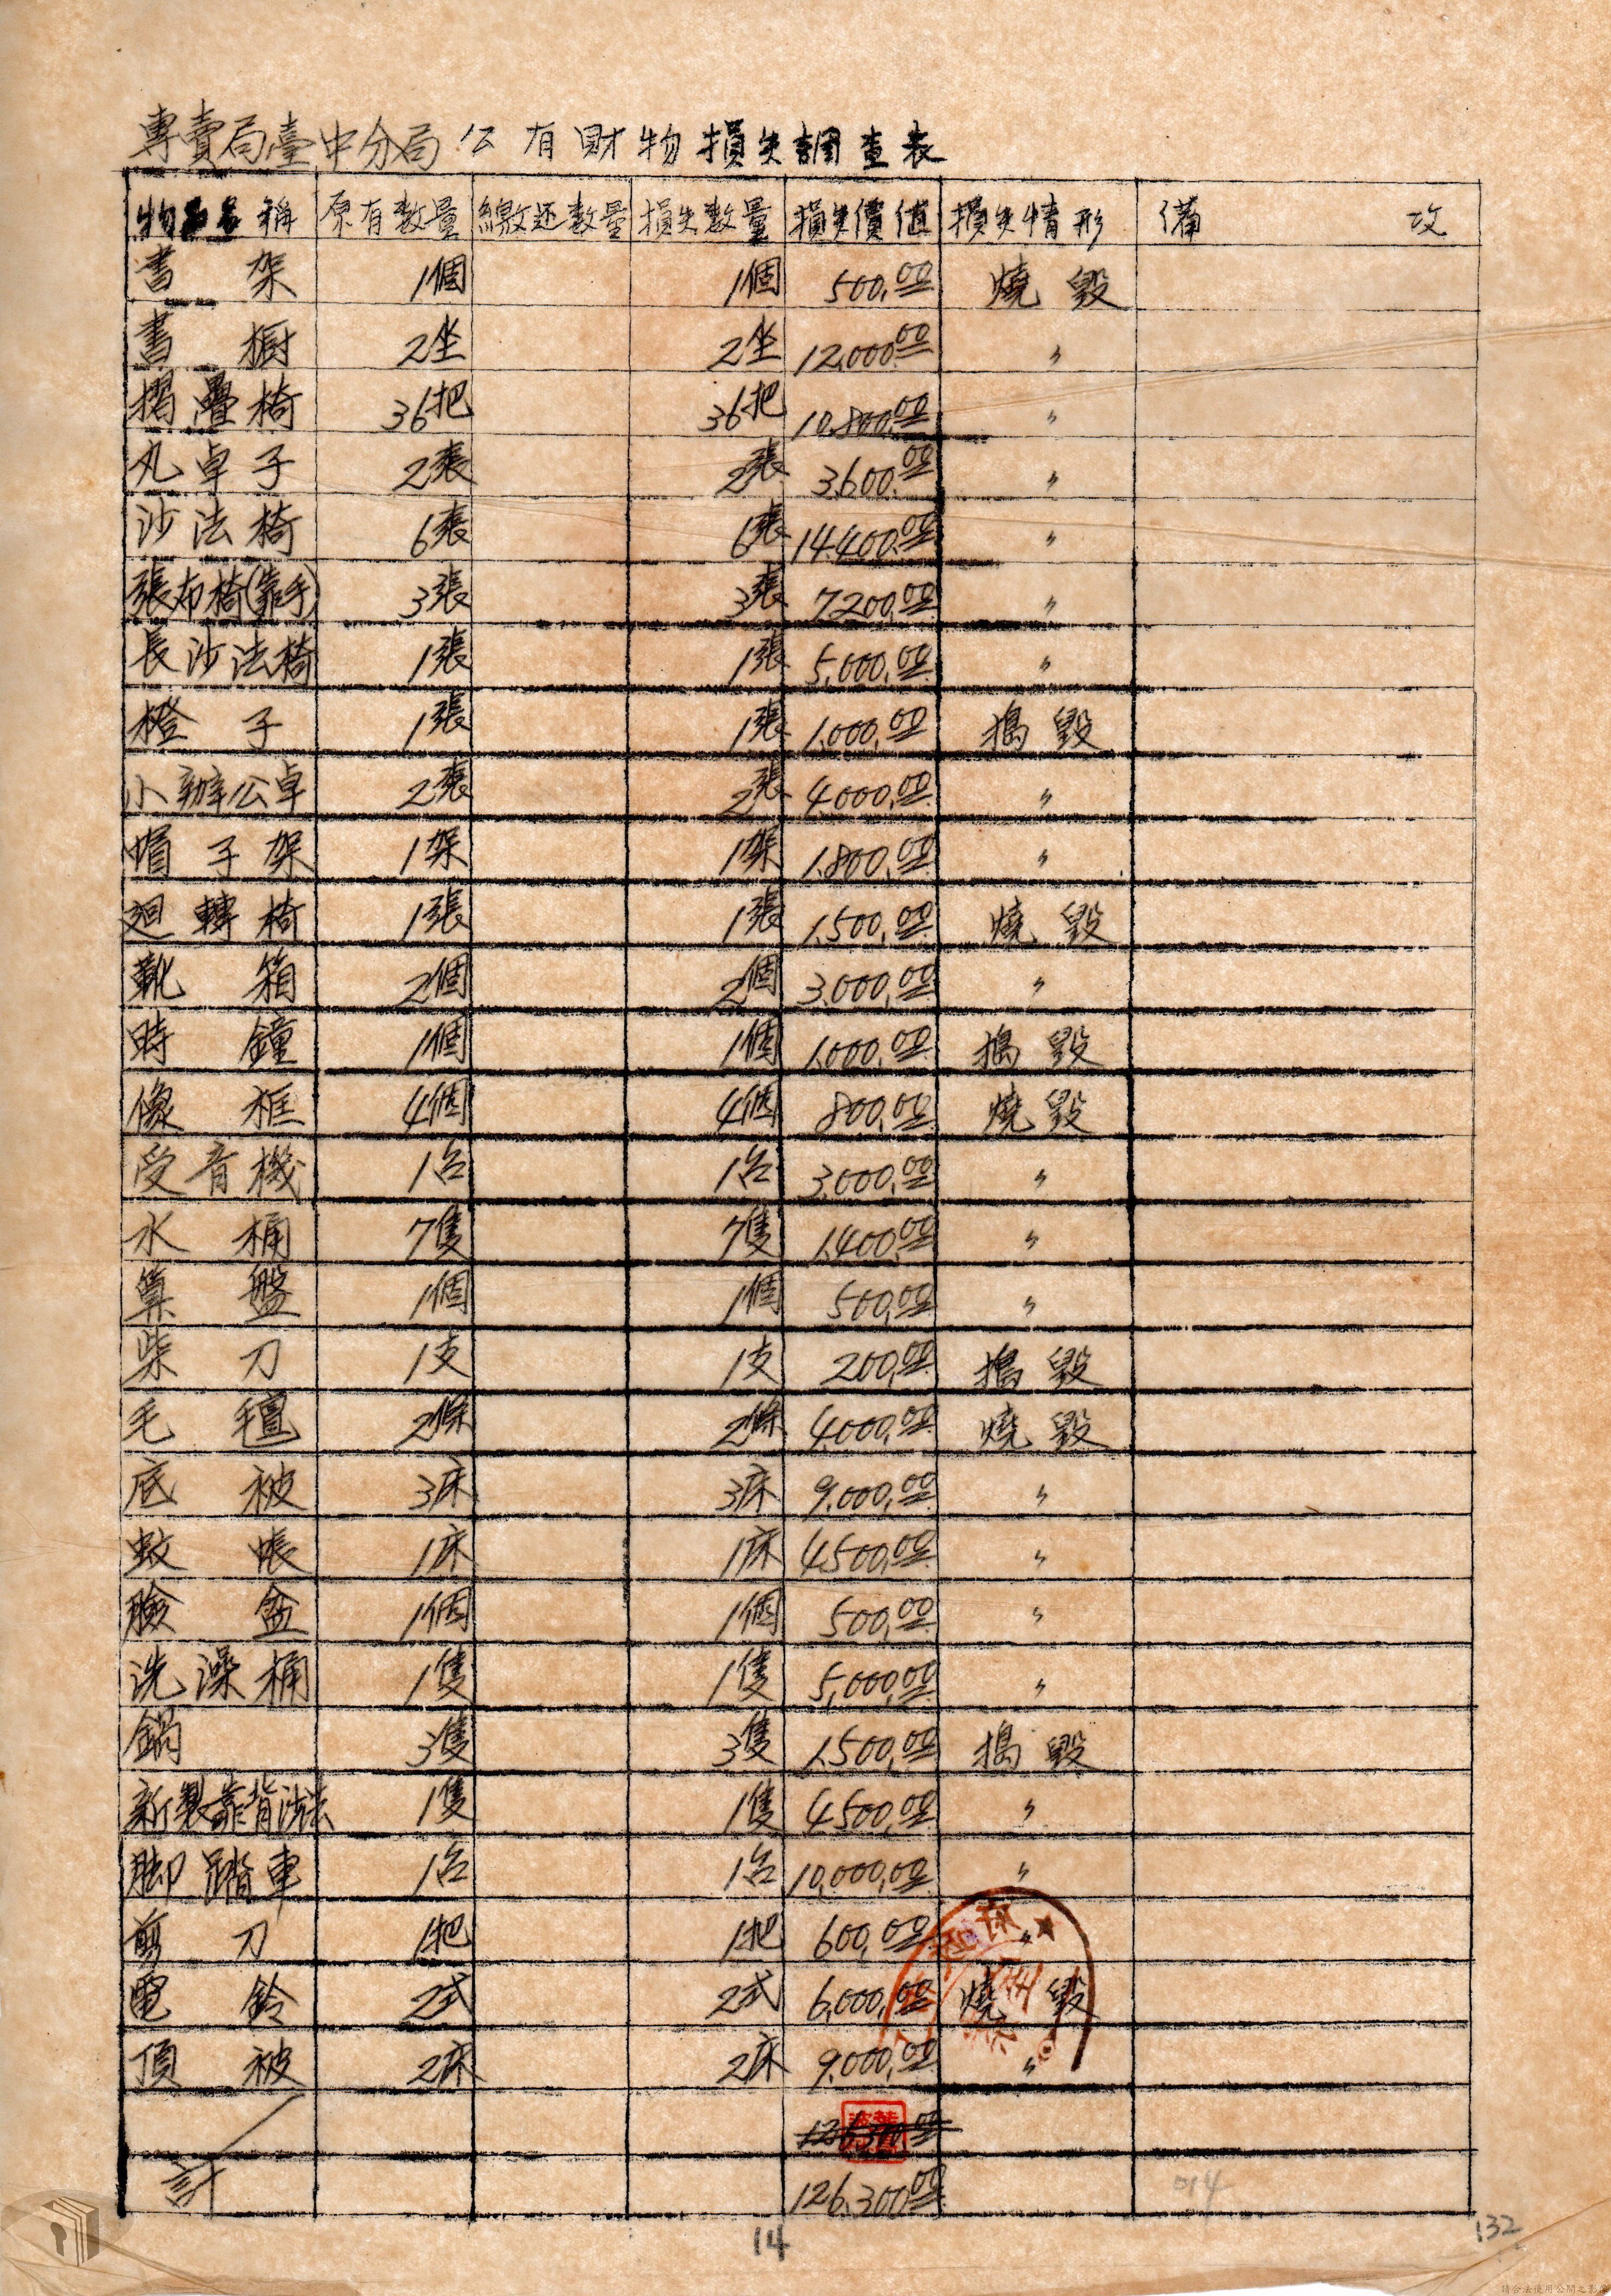 專賣局臺中分局公有財物損失調查表
物品名稱 原有数量 繳还数量 損失数量 損失價值 損失情形 備攷
書架 1個 1個 500.00 燒毀
書橱 2坐 2坐 12,000.00 〃
摺疊椅 36把 36把 10,800.00 〃
丸卓子 2張 2張 3,600.00 〃
沙法椅 6張 6張 14,400.00 〃
張布椅(靠手) 3張 3張 7,200.00 〃
長沙法椅 1張 1張 5,000.00 〃
橙子 1張 1張 1,000.00 搗毀
小辦公卓 2張 2張 4,000.00 〃
帽子架 1架 1架 1,800.00 〃
迴轉椅 1張 1張 1,500.00 燒毀
靴箱 2個 2個 3,000.00 〃
時鐘 1個 1個 1,000.00 搗毀
像框 4個 4個 800.00 燒毀
受音機 1台 1台 3,000.00 〃
水桶 7隻 7隻 1,400.00 〃
算盤 1個 1個 500.00 〃
柴刀 1支 1支 200.00 搗毀
毛氊 2條 2條 4,000.00 燒毀
底被 3床 3床 9,000.00 〃
蚊帳 1床 1床 4,500.00 〃
臉盆 1個 1個 500.00 〃
洗澡桶 1隻 1隻 5,000.00 〃
鍋 3隻 3隻 1,500.00 搗毀
新製靠背沙法 1隻 1隻 4,500.00 〃
脚踏車 1台 1台 10,000.00 〃
剪刀 1把 1把 600.00 〃
電鈴 2式 2式 6,000.00 燒毀
頂被 2床 2床 9,000.00 〃
計 126,300.00
014
14
132
請合法使用公開之影像